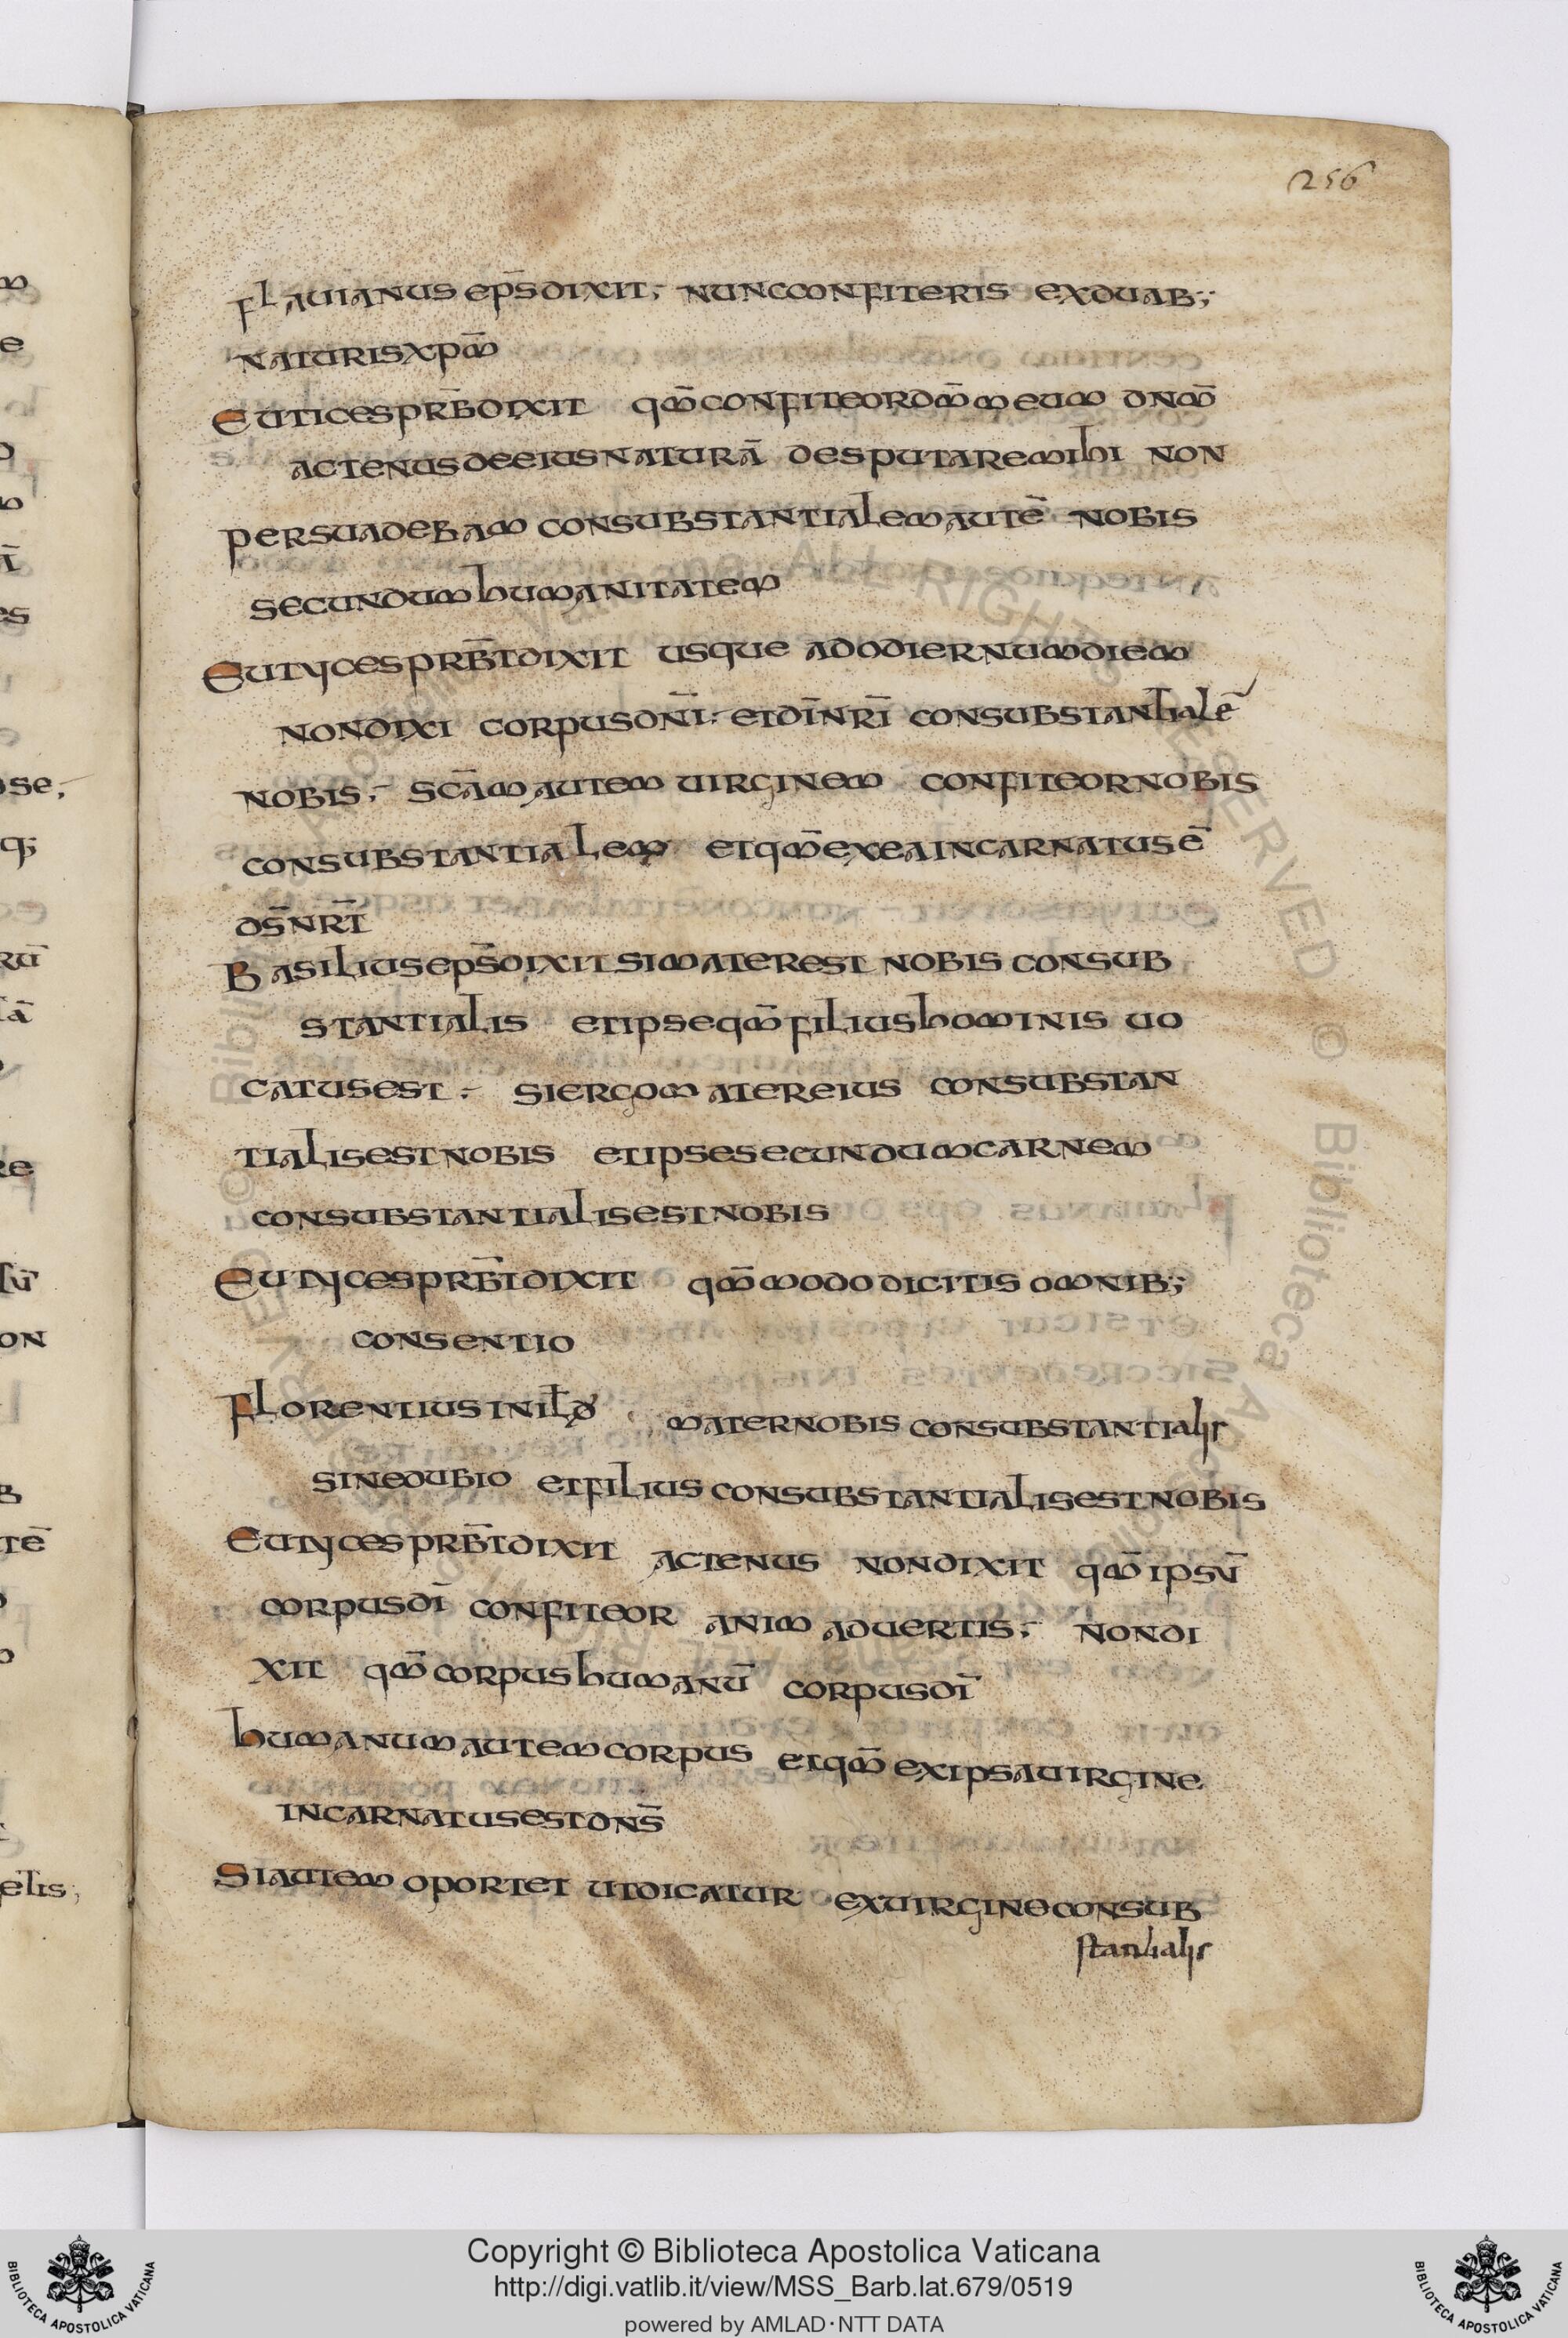 256
Flauianus ep̄s dixit; nunc confiteris ex duab;
naturis xpm̄
Eutices prb̄ dixit qm̄ confiteor dm̄ meum dnm̄
actenus de eius naturā desputare mihi non
persuadebam consubstantialem autē nobis
secundum humanitatem
Eutyces prb̄t dixit usque ad odiernum diem
non dixi corpus dn̄i; et dī nr̄i consubstantialē
nobis; scām autem uirginem confiteor nobis
consubstantialem et qm̄ ex ea incarnatus ē
ds̄ nr̄t
Basilius ep̄s dixit si mater est nobis consub
stantialis et ipse qm̄ filius hominis uo
catus est; si ergo mater eius consubstan
tialis est nobis et ipse secundum carnem
consubstantialis est nobis
Eutyces prb̄t dixit qm̄ modo dicitis omnib;
consentio
Florentius mater nobis consubstantialis
sine dubio et filius consubstantialis est nobis
Eutyces prb̄t dixit actenus non dixit qm̄ ipsū
corpus dī confiteor anim aduertis; non di
xit qm̄ corpus humanū corpus dī
humanum autem corpus et qm̄ ex ipsa uirgine
incarnatus est dns̄
Si autem oportet ut dicatur ex uirgine consub
stantialis
Copyright © Biblioteca Apostolica Vaticana
http://digi.vatlib.it/view/MSS_Barb.lat.679/0519
powered by AMLAD·NTT DATA
BIBLIOTECA APOSTOLICA VATICANA
BIBLIOTECA APOSTOLICA VATICANA